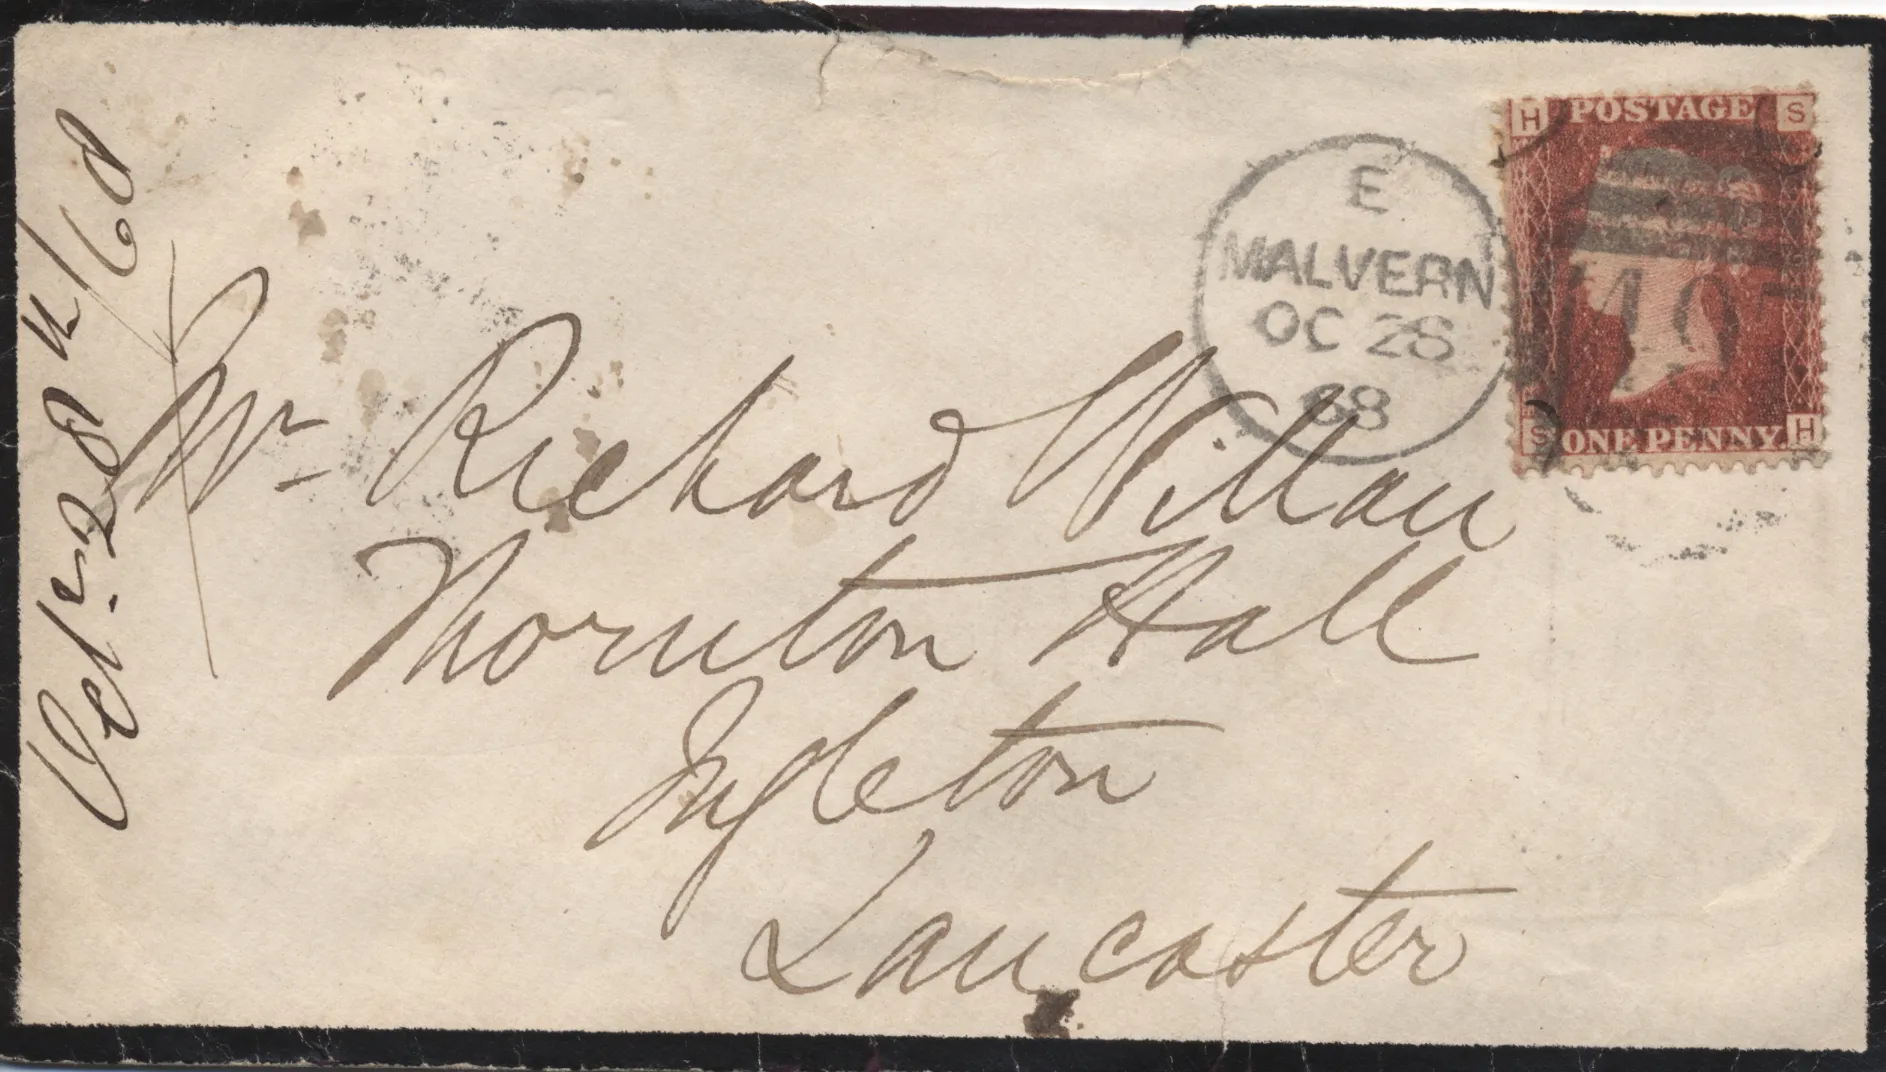 H POSTAGE S
E
MALVERN
OC 28
68
S ONE PENNY H
Mr Richard Willan
Thornton Hall
Ingleton
Lancaster
Oct 28th/68